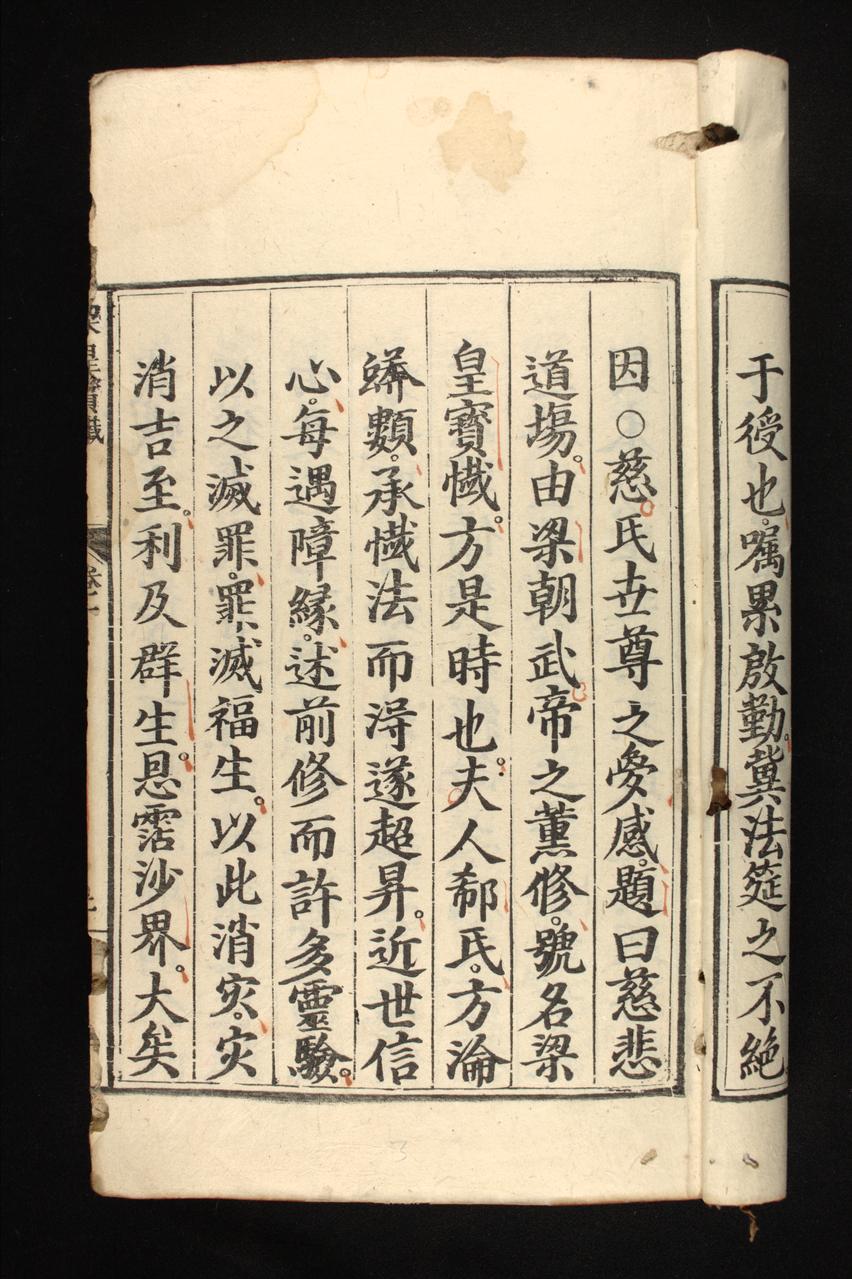 于授也。囑累啟勤。冀法筵之不絶
因○慈。氏世尊之夢感。題曰慈悲
道場。由梁朝武帝之薰修。號名梁
皇寶懺。方是時也。夫人郗氏。方淪
蟒類。承懺法而淂遂超昇。近世信
心。每遇障緣。述前修而許多靈驗。
以之滅罪。罪滅福生。以此消灾。灾
消吉至。利及群生。恩霑沙界。大矣
梁皇寶懺
卷一